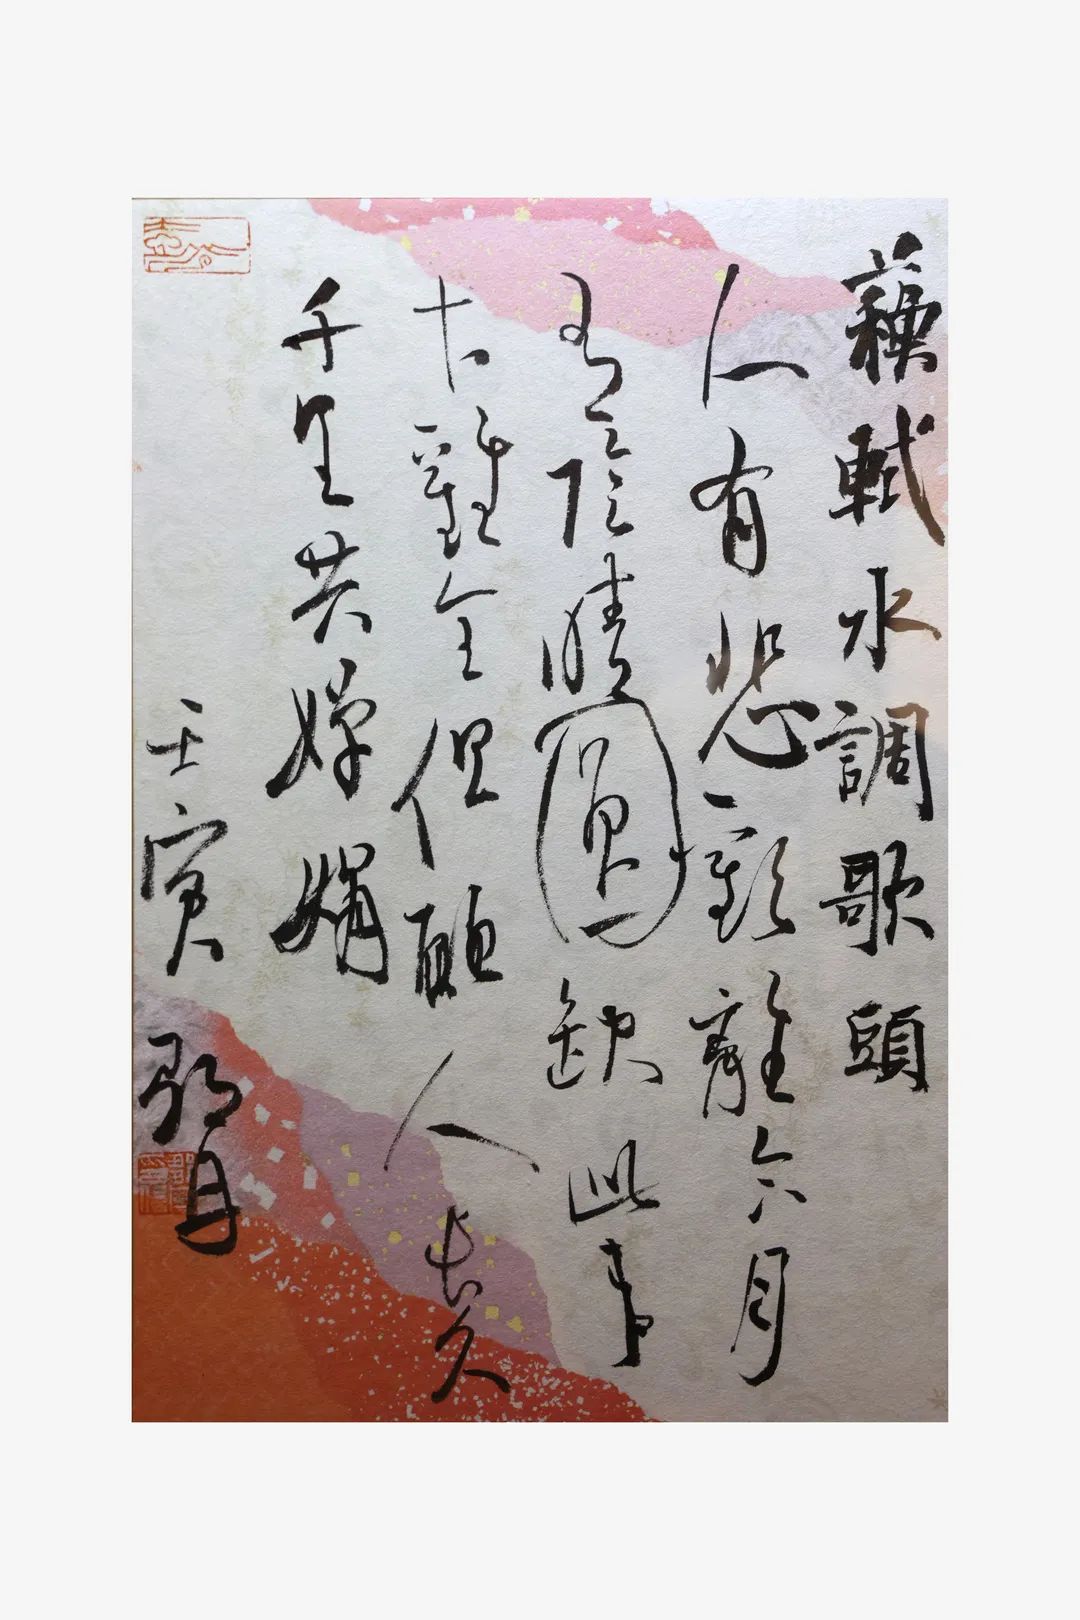 蘓軾水調歌頭
人有悲歡離合月
有陰晴圓缺此事
古難全但願人長久
千里共嬋娟
壬寅